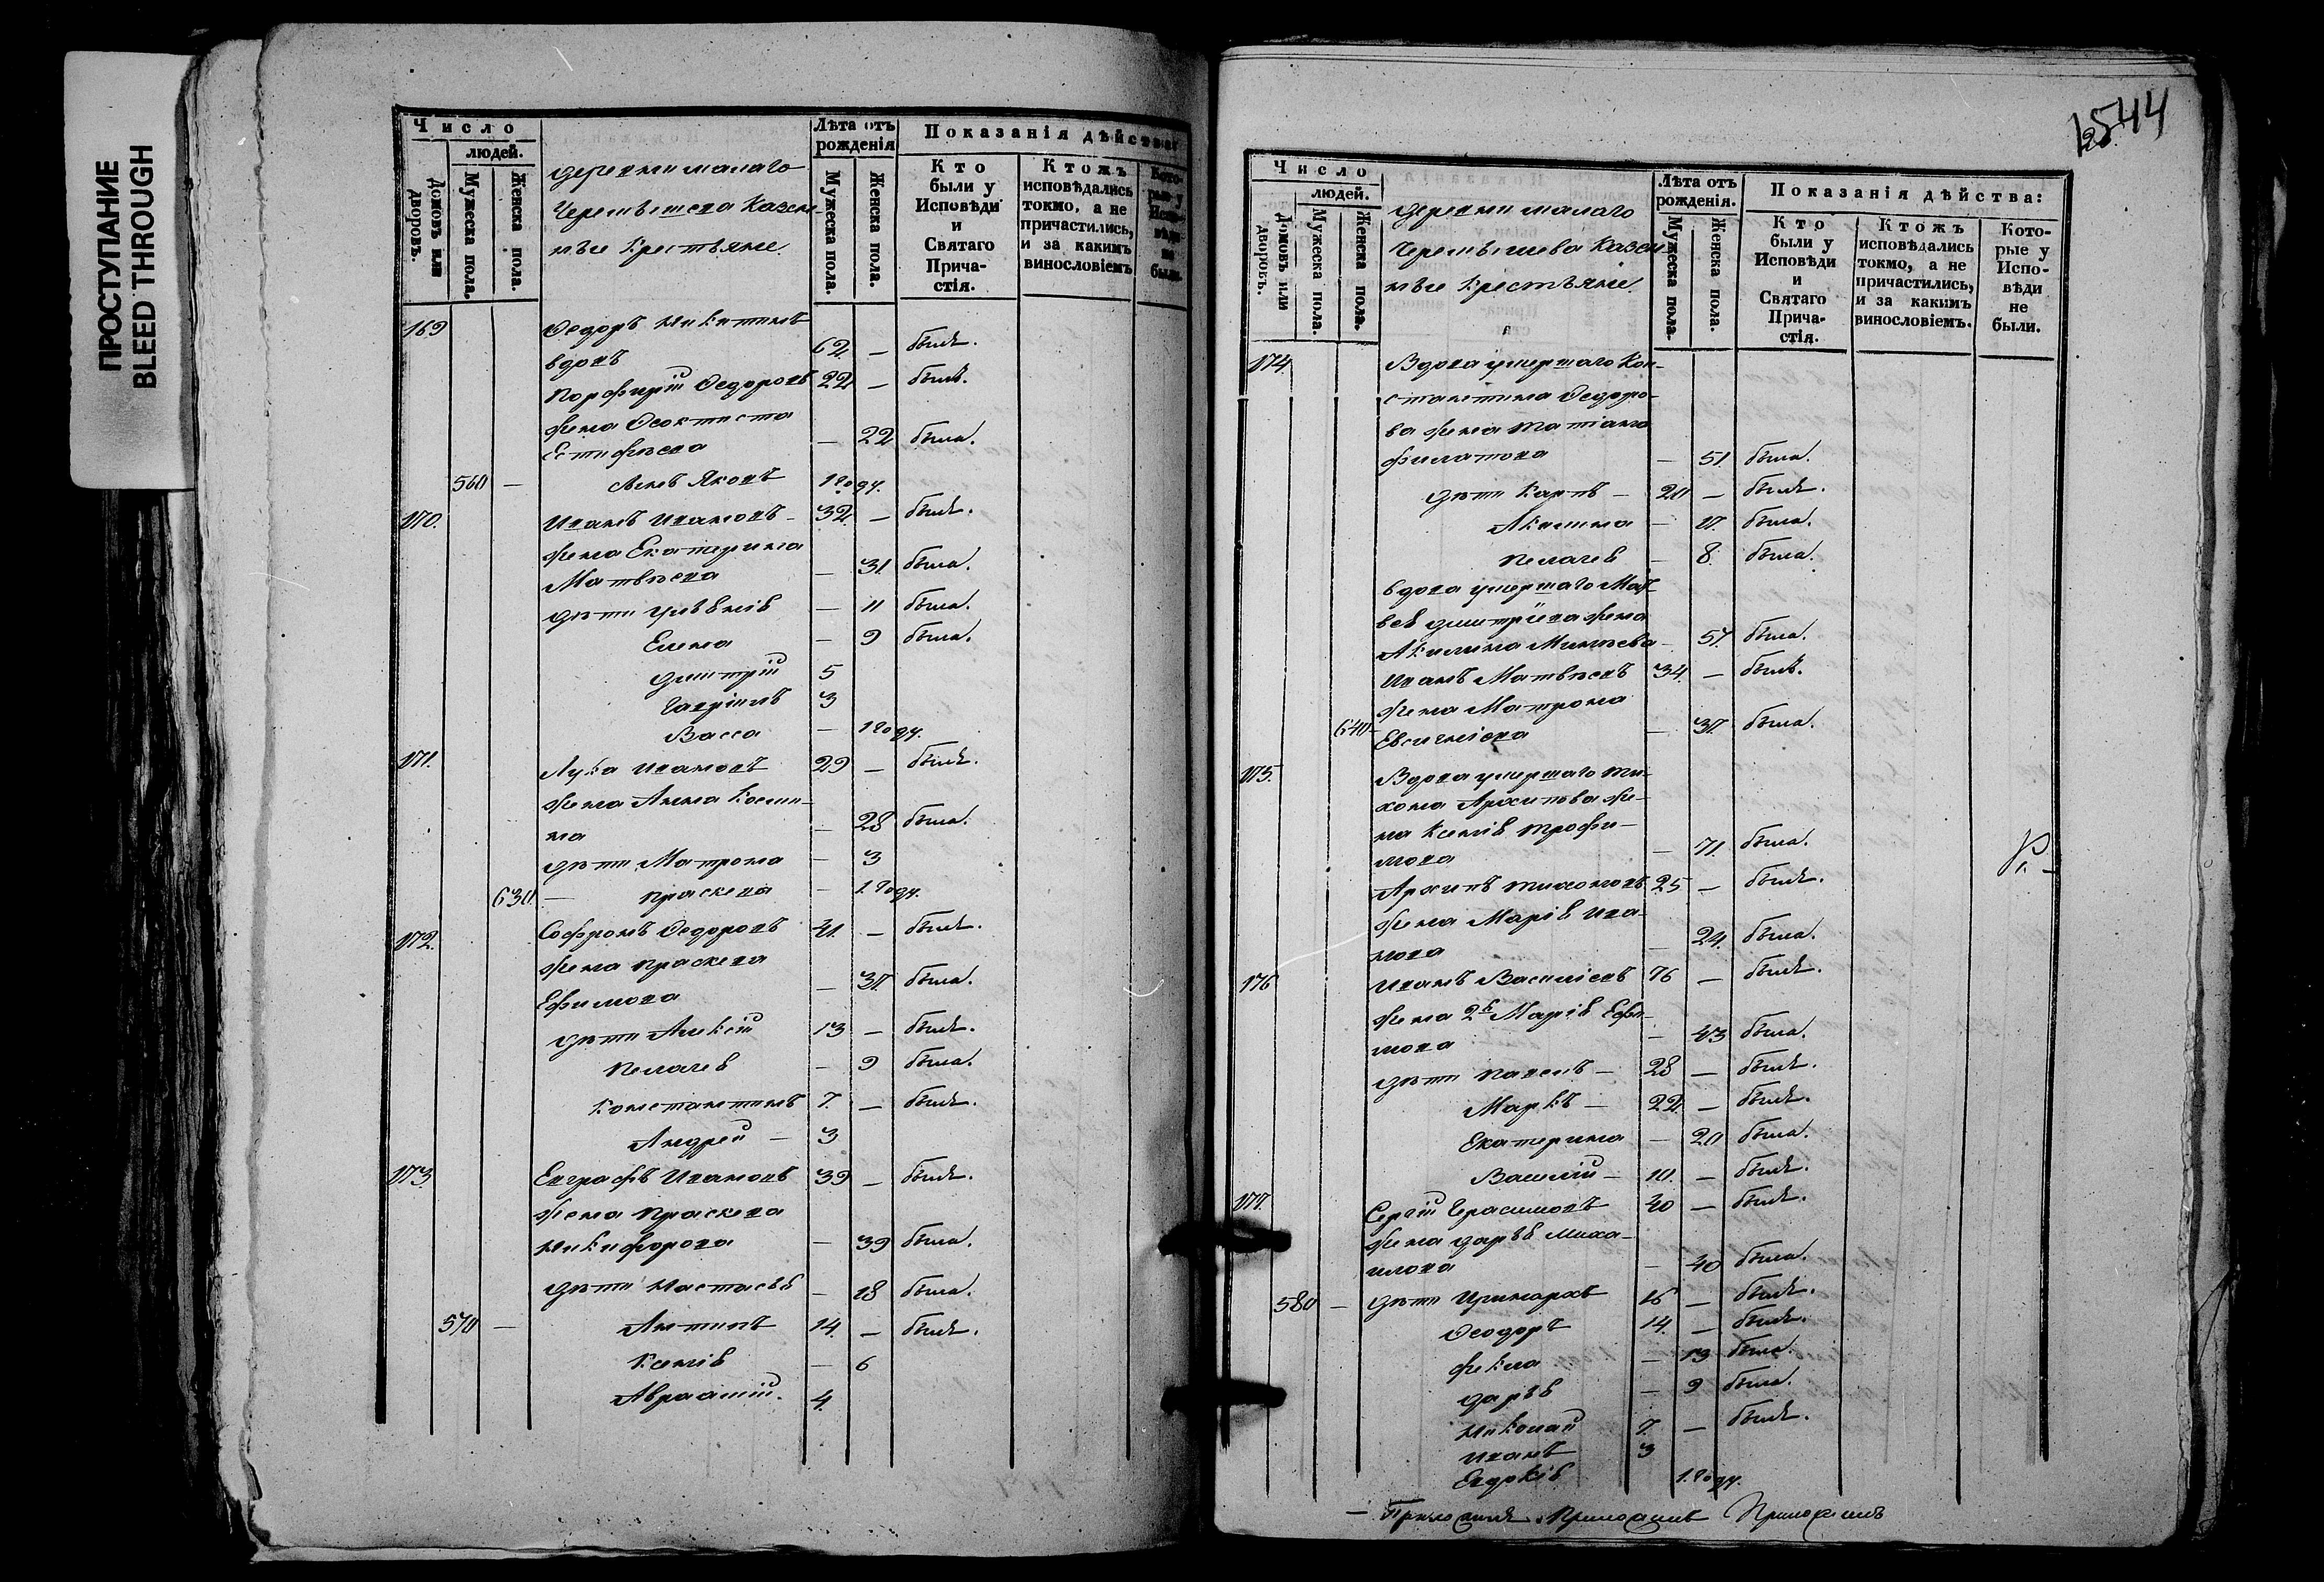 ПРОСТУПАНИЕ
BLEED THROUGH
Число
людей.
Домовъ или дворовъ.
Мужеска пола.
Женска пола.
деревни малаго
Казен-
ные крестьяне.
Лѣта отъ рожденія
Мужеска пола.
Женска пола.
Показанія дѣйства:
Кто были у Исповѣди и Святаго Причастія.
Ктожъ исповѣдались токмо, а не причастились, и за какимъ винословіемъ
Которые у Исповѣди не были.
169 Ѳедоръ Никитинъ
вдовъ 62 — былъ.
Порфирій Ѳедоровъ 22 — былъ.
жена Ѳеоктиста
Естифѣева — 22 была.
560 — сынъ Яковъ 1 году.
170. Иванъ Ивановъ — 32 — былъ.
жена Екатерина
Матвѣева — 31 была.
дѣти Ульянія — 11 была.
Елена — 9 была.
Дмитрій 5
Гавріилъ 3
Васса — 1 году.
171. Лука Ивановъ 29 — былъ.
жена Анна Косми-
на — 28 была.
дѣти Матрона — 3
630 — Праскева — 1 году.
172. Софронъ Ѳедоровъ 41. — былъ.
жена Праскева
Ефимова — 37. была.
дѣти Алексій 13 — былъ.
Пелагея — 9 была.
Константинъ 7. — былъ.
Андрей — 3
173. Евграфъ Ивановъ 39 — былъ.
жена Праскева
Никифорова — 39 была.
дѣти Настасья — 18 была.
570 — Антипъ 14. — былъ.
Ксенія — 6
Авраамій. 4.
544
Число
людей.
Домовъ или дворовъ.
Мужеска пола.
Женска пола.
деревни малаго
Казен-
ные крестьяне.
Лѣта отъ рожденія.
Мужеска пола.
Женска пола.
Показанія дѣйства:
Кто были у Исповѣди и Святаго Причастія.
Ктожъ исповѣдались токмо, а не причастились, и за какимъ винословіемъ.
Которые у Исповѣди не были.
174. Вдова умершаго Кон-
стантина Ѳедоро-
ва жена Татіана
Филатова — 51. была.
дѣти Карпъ — 20 — былъ.
Акилина — 17. была.
Пелагея — 8. была.
вдова умершаго Мат-
вея Дмитріева жена
Акилина Минѣева — 57. была.
Иванъ Матвѣевъ 34. — былъ.
жена Матрона
640 — Евсигніева — 37. была.
175. Вдова умершаго Ти-
хона Архипова же-
на Ксенія Трофи-
мова — 71. была.
Архипъ Тихоновъ 25 — былъ.
жена Марія Ива-
нова — 24. была.
176 Иванъ Василіевъ 76 — былъ.
жена 2я Марія Ефи-
мова — 43 была.
дѣти Павелъ — 28 — былъ.
Маркъ — 22. — былъ.
Екатерина — 20 была.
Василій — 10. — былъ.
177. Сергій Герасимовъ 40 — былъ.
жена Дарья Миха-
илова — 40 была.
580 — дѣти Иринархъ 16 — былъ.
Ѳеодоръ 14. — былъ.
Фекла — 13 была.
Дарья — 9 была.
Николай 7. — былъ.
Иванъ 3
Евдокія 1. году.